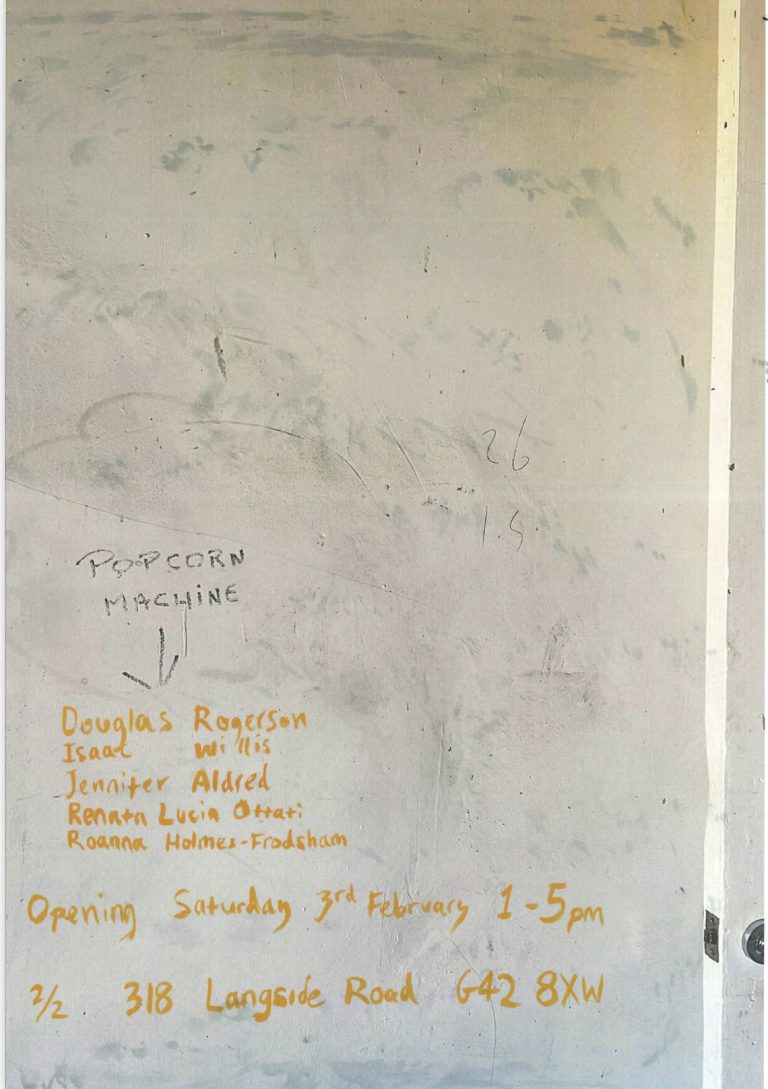 26
1.5
POPCORN
MACHINE
Douglas Rogerson
Isaac Willis
Jennifer Aldred
Renata Lucia Ottati
Roanna Holmes-Frodsham
Opening Saturday 3rd February 1-5pm
2/2 318 Langside Road G42 8XW